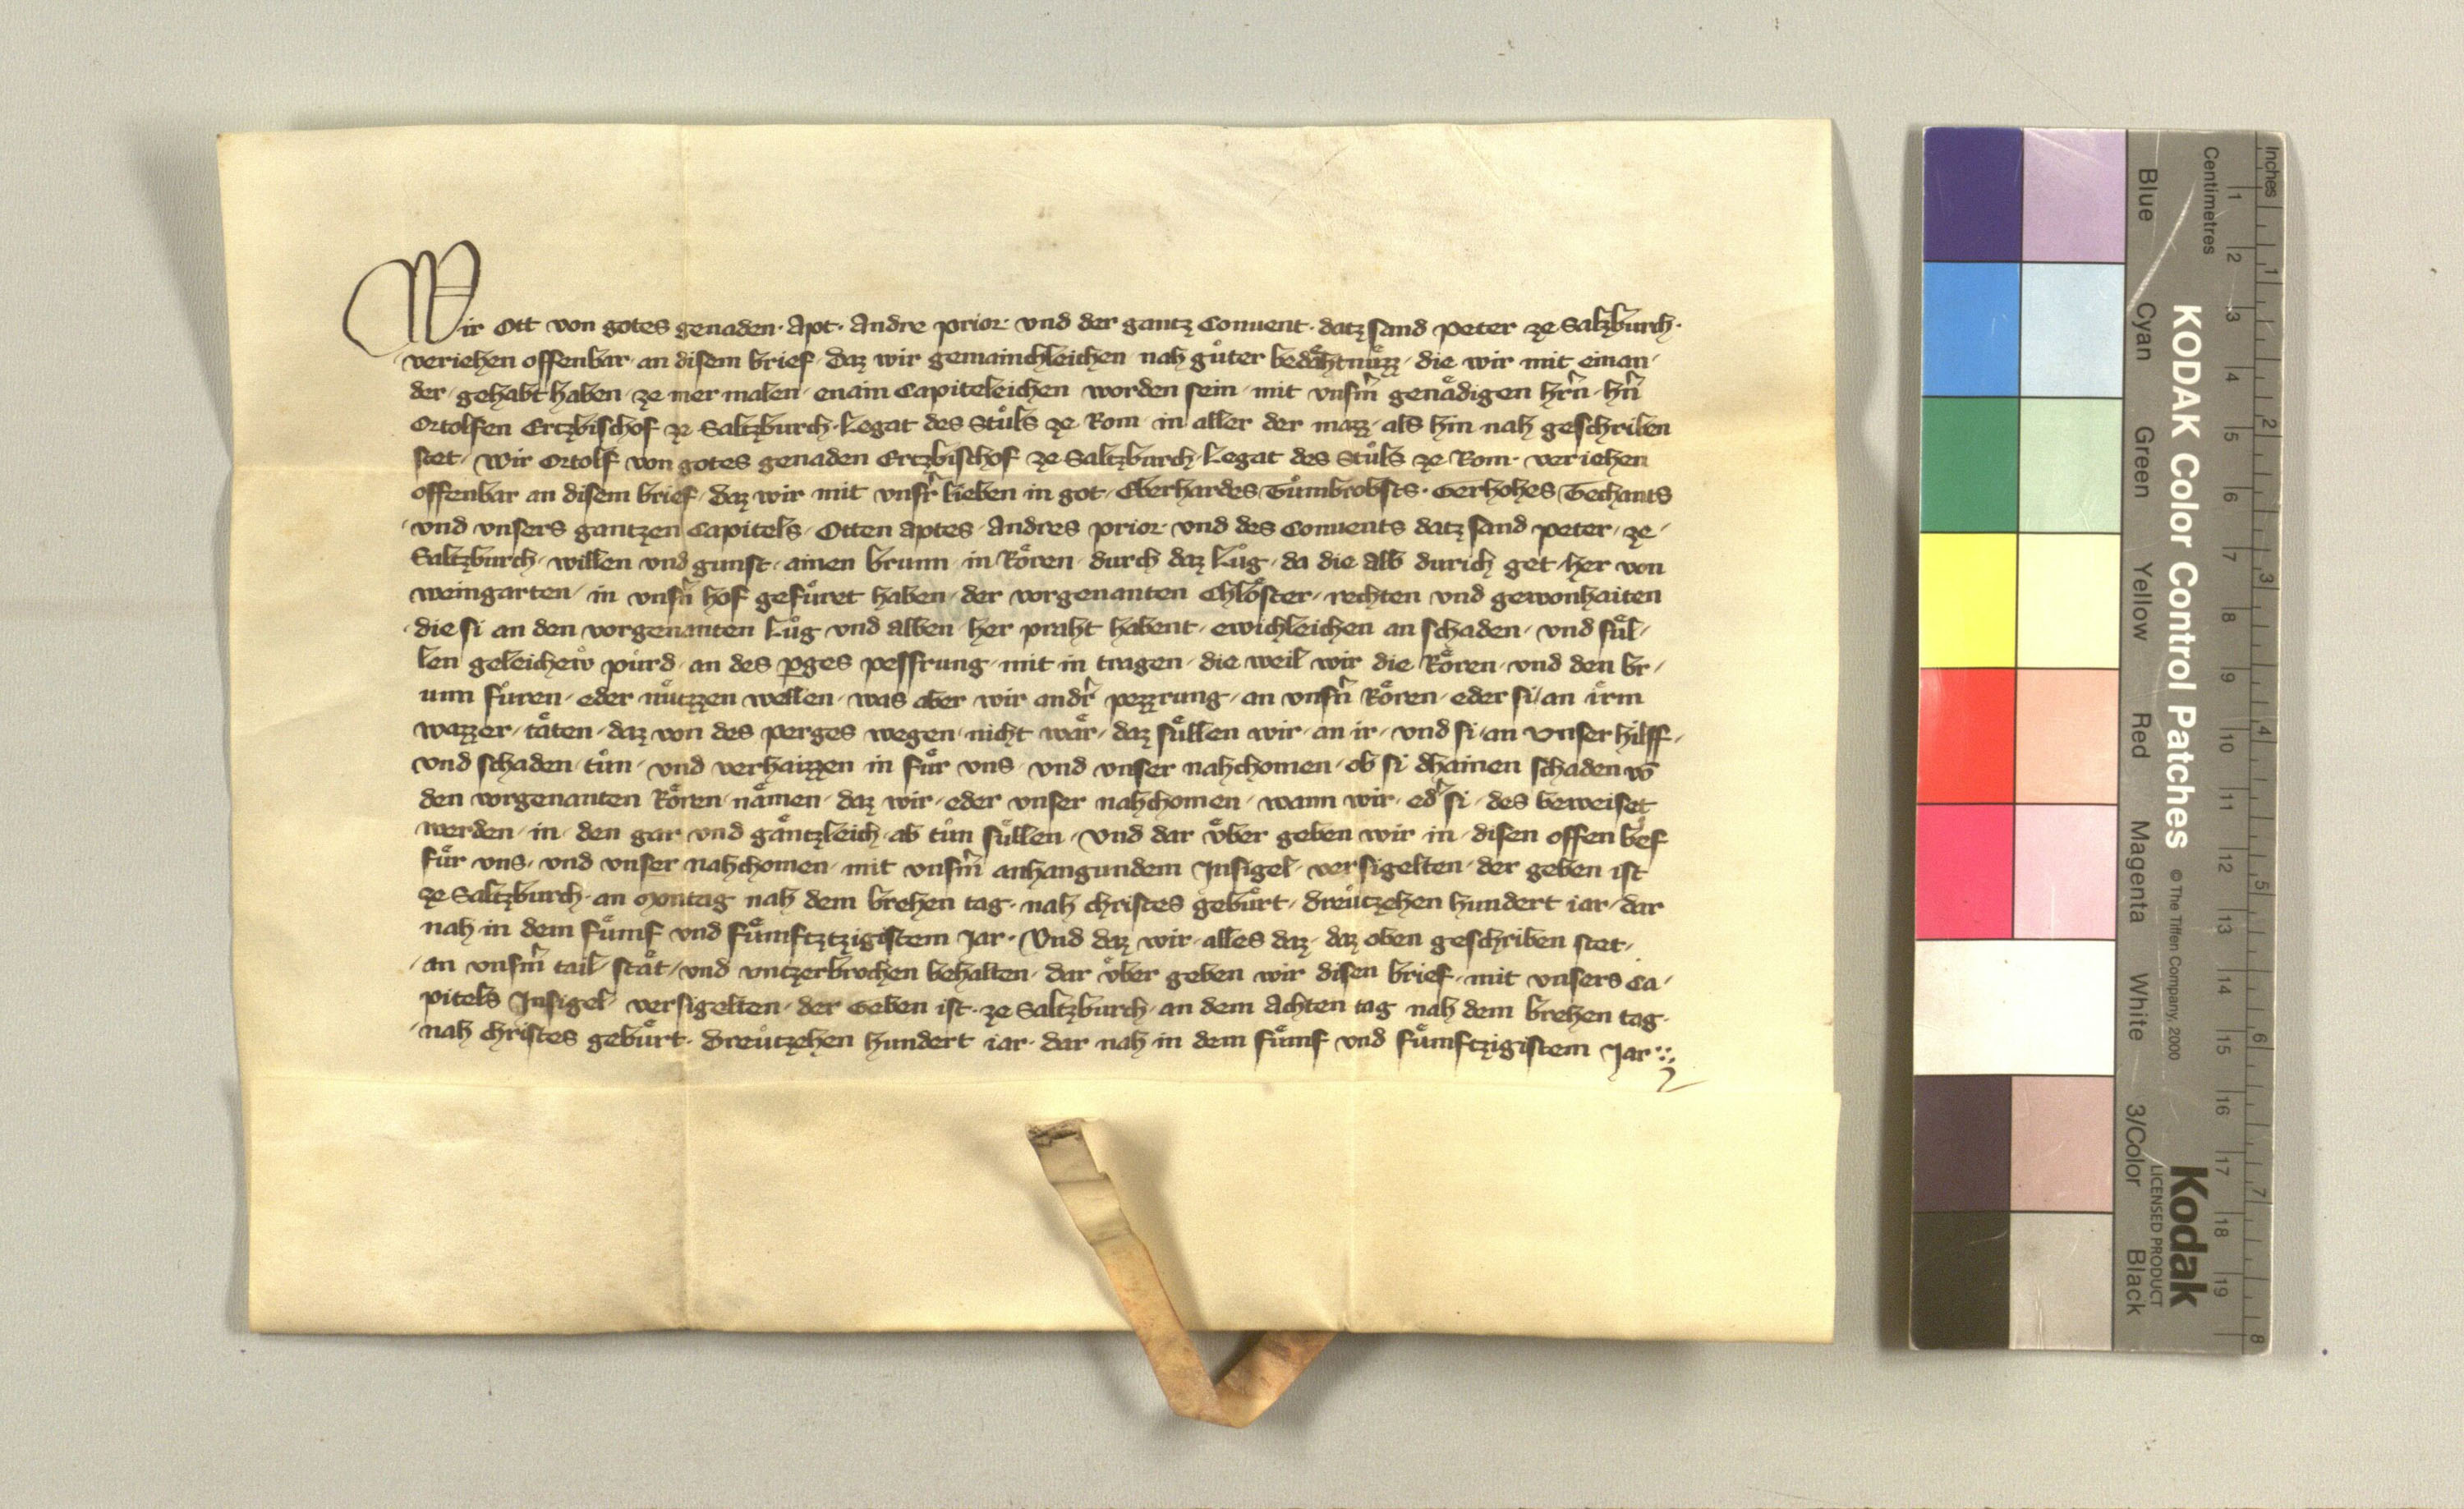 Wir Ott von gotes genaden · Apt · Andre prior · vnd der gantz Conuent · datz sand peter ze Saltzburch ·
veriehen offenbar · an disem brief · daz wir gemainchleichen nah guͦter bedaͤhtnuͤzz · die wir mit einan
der · gehabt haben · ze mer malen · enain Capiteleichen worden sein · mit vnsm̄ genaͤdigen hrn̄ · hn̄
Ortolfen Ertzbischof ze Saltzburch · Legat des Stuͦls ze Rom · in aller der mazz · als hin nah geschriben
stet · Wir Ortolf von gotes genaden Ertzbischof ze Saltzburch · Legat des Stuͦls ze Rom · veriehen
offenbar an disem brief · daz wir mit vnsr̄ lieben in got · Eberhardes Tuͦmbrobsts · Gerhohes Techants
vnd vnsers gantzen Capitels · Otten aptes · Andres prior · vnd des Conuents datz sand peter · ze
Saltzburch · willen vnd gunst · ainen brunn · in Roͤren · durch daz Luͦg · da die alb durich get · her von
weingarten · in vnsn̄ hof gefuͤret haben · der vorgenanten Chloͤster · rechten vnd gewonhaiten
die si an den vorgenanten Luͦg vnd alben · her praht habent · ewichleichen an schaden · vnd suͤl
len geleichew puͤrd · an des pges pessrung · mit in tragen · die weil wir die Roͤren · vnd den br
unn fuͤren · eder nuͤtzzen wellen · was aber wir andr̄ pezzrung · an vnsn̄ Roͤren · eder si · an irm
wazzer · taͤten · daz von des perges wegen · nicht waͤr · daz suͤllen wir · an ir · vnd si · an vnser hilff ·
vnd schaden · tuͦn · vnd verhaizzen in fuͤr vns · vnd vnser nahchomen · ob si dhainen schaden vō
den vorgenanten Roͤren · naͤmen · daz wir · eder vnser nahchomen · wann wir · ed si · des beweiset
werden · in · den gar vnd gaͤntzleich · ab tuͦn suͤllen · Vnd dar vͤber geben wir in · disen offen bef
fuͤr vns · vnd vnser nahchomen · mit vnsm̄ anhangundem Insigel · versigelten · der geben ist
ze Saltzburch · an Montag nah dem brehen tag · nah christes gebuͤrt · Dreuͤtzehen hundert iar · dar
nah in dem fuͤmf vnd fuͤmftztzigistem Jar · Vnd daz wir · alles daz · daz oben geschriben stet ·
an vnsm̄ tail · staͤt · vnd vntzerbrochen behalten · dar vͤber geben wir disen brief · mit vnsers Ca
pitels Insigel · versigelten · der Geben ist · ze Saltzburch · an dem Achten tag nah dem brehen tag ·
nah Christes gebuͤrt · Dreuͤtzehen hundert iar · dar nah in dem fuͤmf vnd fuͤmftzigistem Jar
KODAK Color Control Patches © The Tiffen Company, 2000
Kodak
LICENSED PRODUCT
Blue Cyan Green Yellow Red Magenta White 3/Color Black
Centimetres 1 2 3 4 5 6 7 8 9 10 11 12 13 14 15 16 17 18 19
Inches 1 2 3 4 5 6 7 8